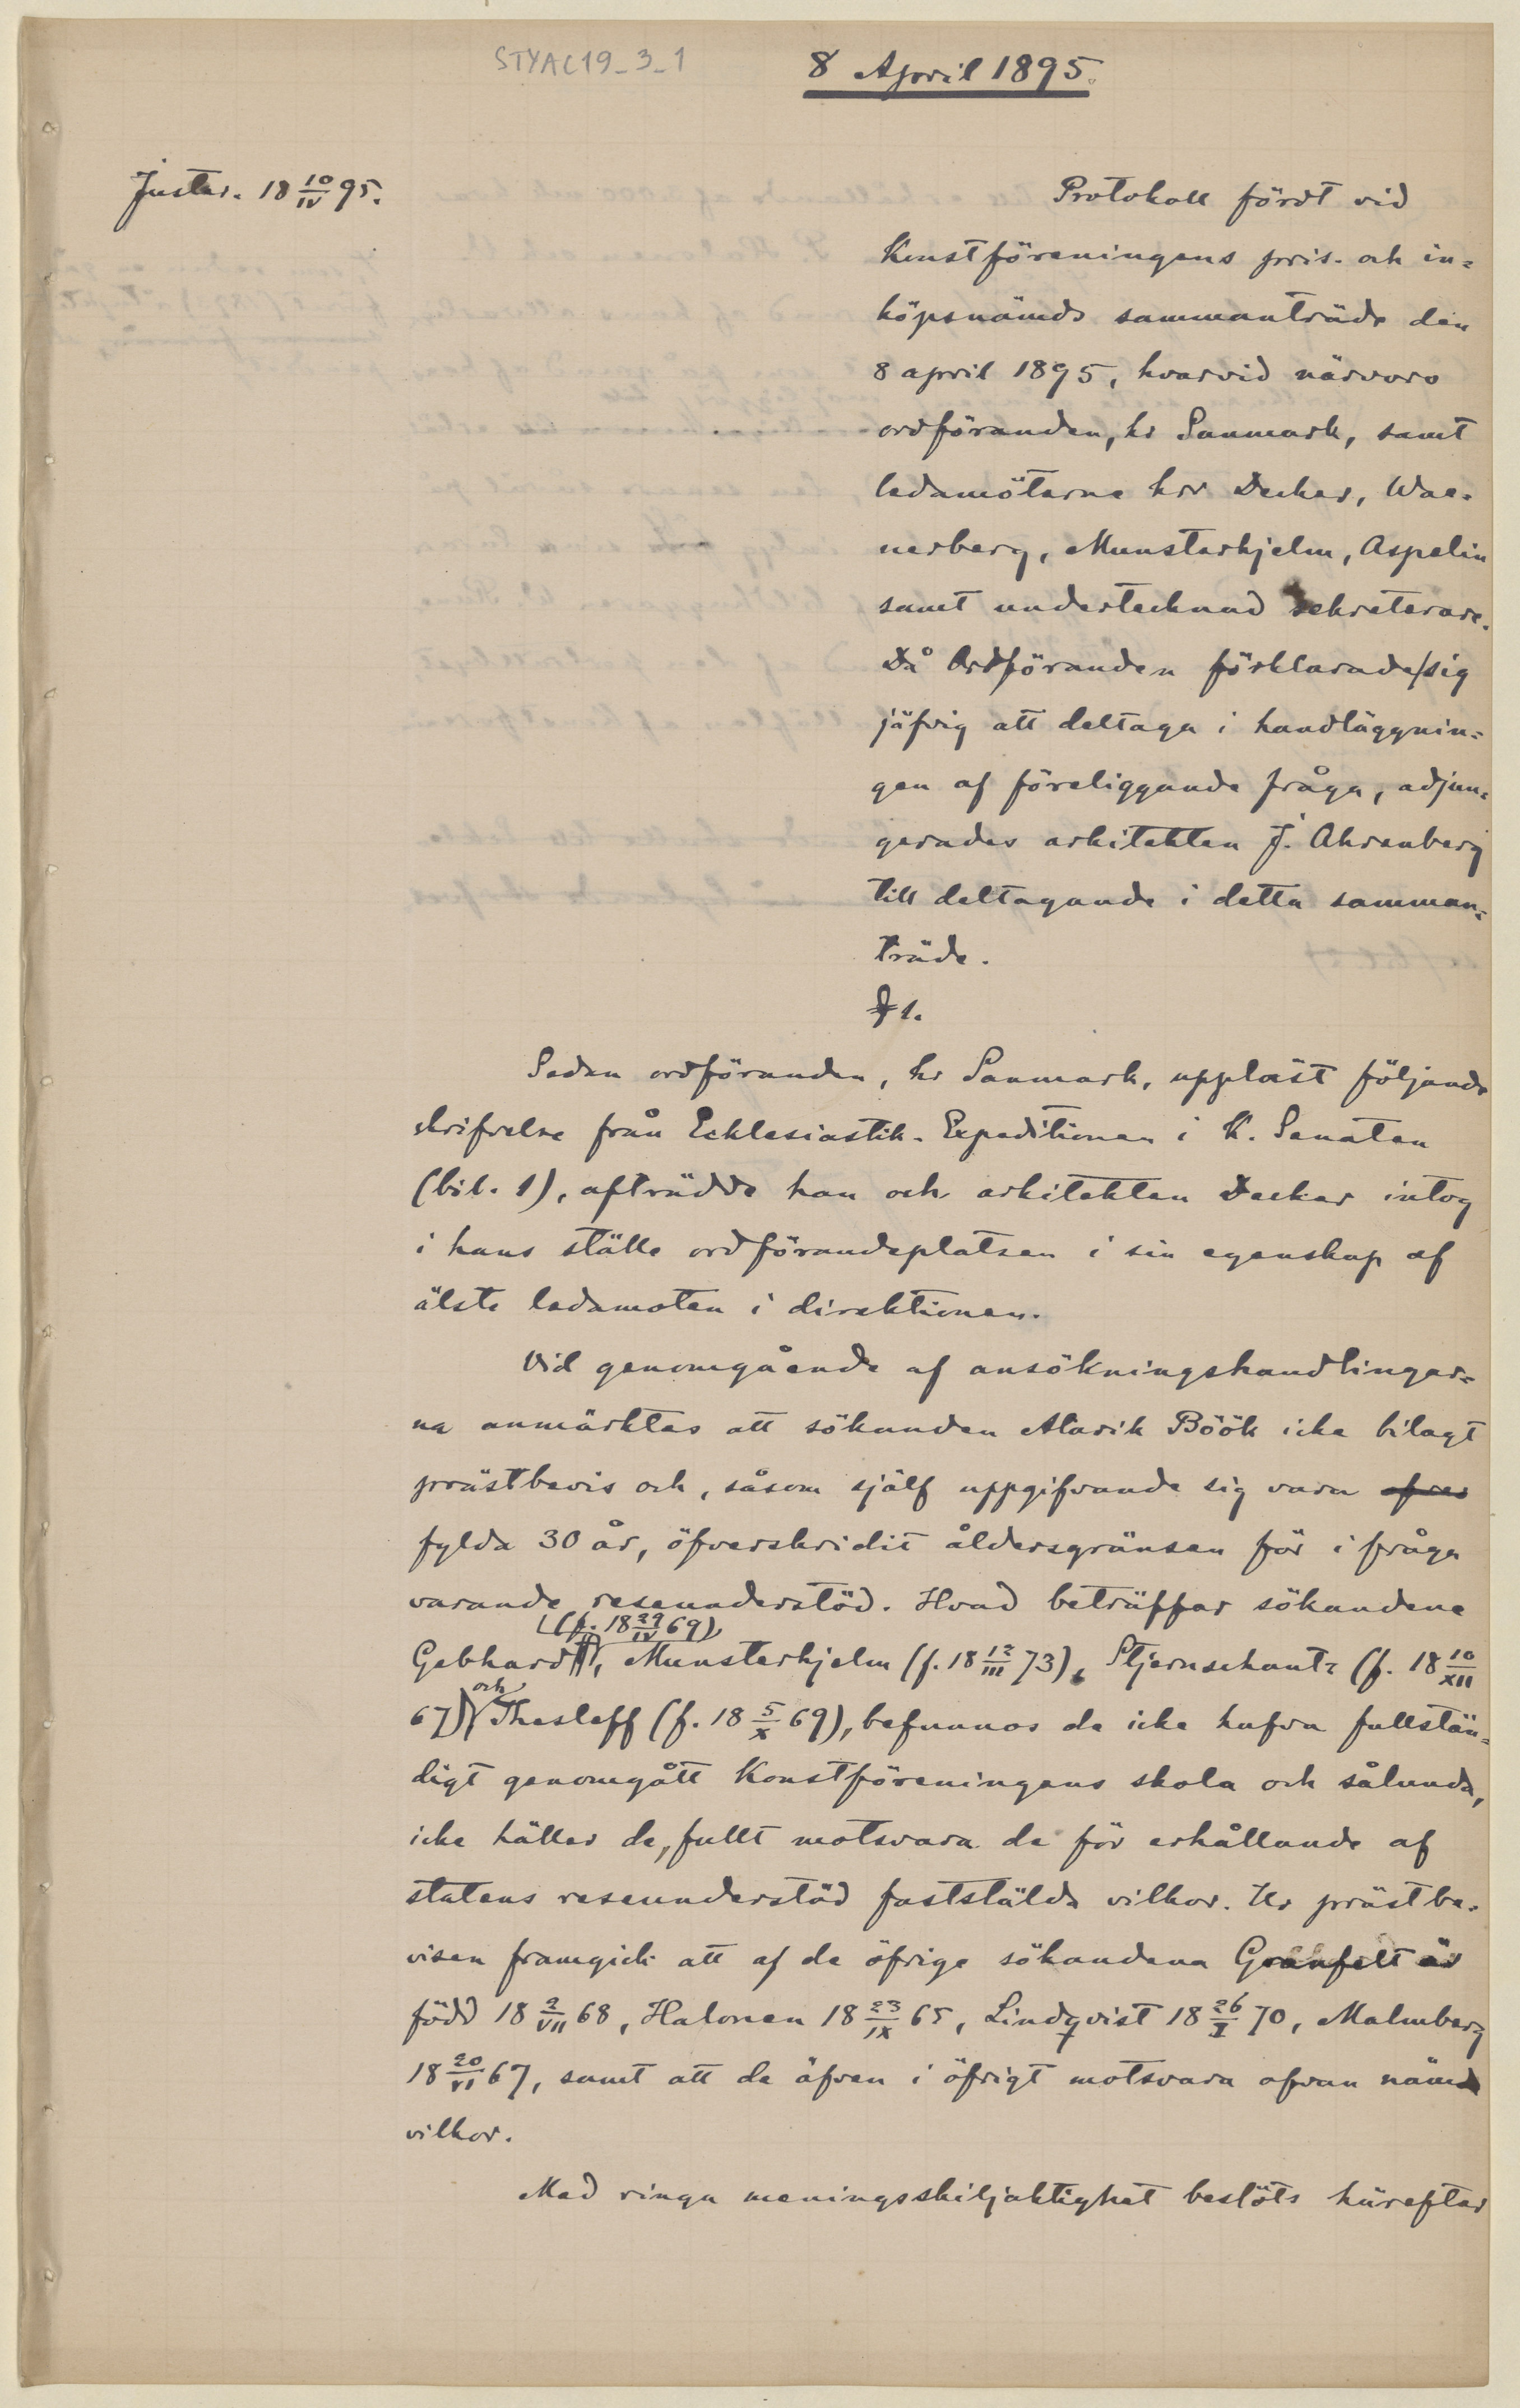 STYAC19_3_1
8 April 1895.
Juster. 18 10/IV 95.
Protokoll fördt vid
Konstföreningens pris- och in=
köpsnämds sammanträde den
8 april 1895, hvarvid närvoro
ordföranden, hr Sanmark, samt
ledamöterne hrr Decker, Wae-
nerberg, Munsterhjelm, Aspelin
samt undertecknad sekreterare.
Då Ordföranden förklarade sig
jäfvig att deltaga i handläggnin=
gen af föreliggande fråga, adjun=
gerades arkitekten J. Ahrenberg
till deltagande i detta samman=
träde.
§ 1.
Sedan ordföranden, hr Sanmark, uppläst följande
skrifvelse från Ecklesiastik-Expeditionen i K. Senaten
(bil. 1), afträdde han och arkitekten Decker intog
i hans ställe ordförandeplatsen i sin egenskap af
älste ledamoten i direktionen.
Vid genomgående af ansökningshandlingar=
na anmärktes att sökanden Alarik Böök icke bilagt
prästbevis och, såsom själf uppgifvande sig vara
fylda 30 år, öfverskridit åldersgränsen för i fråga
varande reseunderstöd. Hvad beträffar sökandene
(f. 18 29/IV 69)
Gebhard, Munsterhjelm (f. 18 12/III 73), Stjernschantz (f. 18 10/XII
67) och Thesleff (f. 18 5/X 69), befunnos de icke hafva fullstän=
digt genomgått Konstföreningens skola och sålunda,
icke häller de, fullt motsvara de för erhållande af
statens reseunderstöd fastställda vilkor. Ur prästbe-
visen framgick att af de öfrige sökandena Granfelt är
född 18 2/VII 68, Halonen 18 23/IX 65, Lindqvist 18 26/I 70, Malmberg
18 20/VI 67, samt att de äfven i öfrigt motsvara ofvan nämda
vilkor.
Med ringa meningsskiljaktighet beslöts härefter